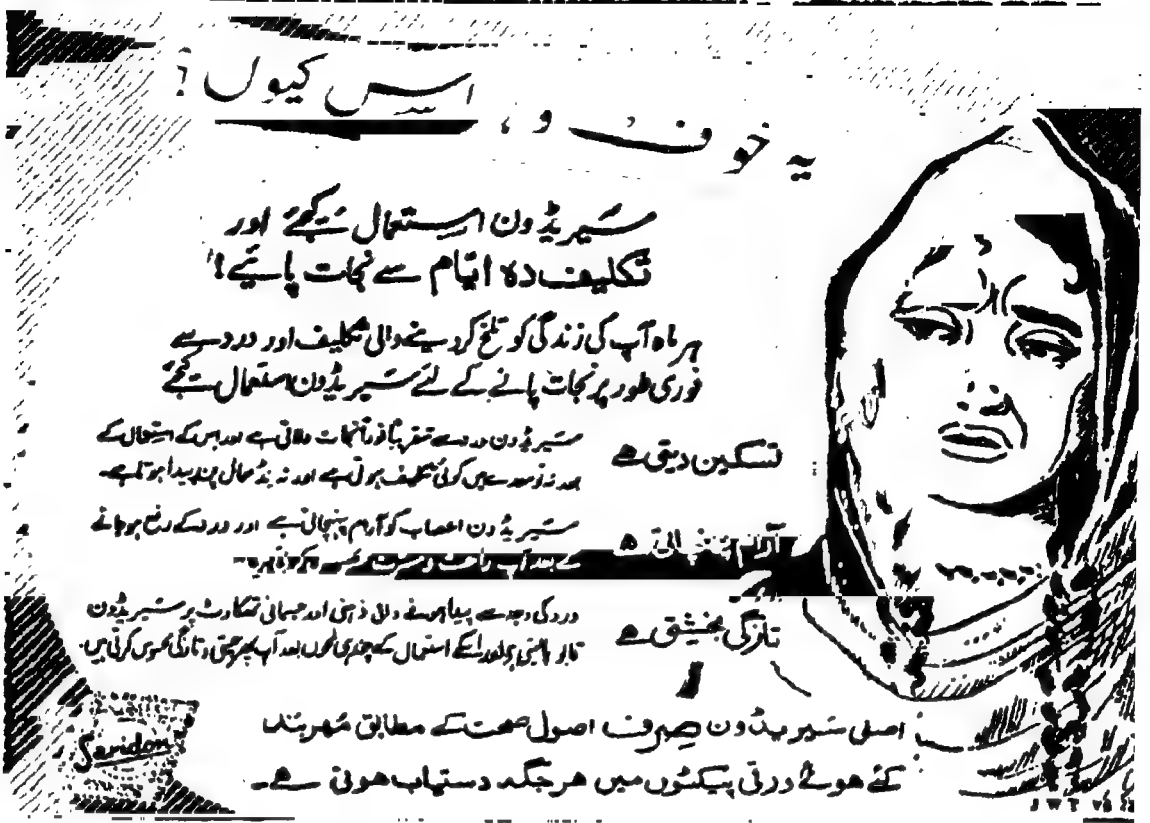 یہ خوف و ہراس کیوں؟
سَیریڈون استعمال کیجئے اور
تکلیف دہ ایّام سے نجات پائیے!
ہر ماہ آپ کی زندگی کو تلخ کر دینے والی تکلیف اور درد سے
فوری طور پر نجات پانے کے لئے سَیریڈون استعمال کیجئے
تسکین دیتی ہے
سَیریڈون درد سے تقریباً فوراً نجات دلاتی ہے اور اس کے استعمال کے
بعد نہ تو معدے میں کوئی تکلیف ہوتی ہے اور نہ نڈھال پن پیدا ہوتا ہے۔
آرام پہنچاتی ہے
سَیریڈون اعصاب کو آرام پہنچاتی ہے اور درد کے رفع ہو جانے
کے بعد آپ راحت و مسرت
تازگی بخشتی ہے
درد کی وجہ سے پیدا ہونے والی ذہنی اور جسمانی تھکاوٹ پر سَیریڈون
قابو پا لیتی ہے اور اسکے استعمال کے چند ہی لمحوں بعد آپ پھر چستی و تازگی محسوس کرتی ہیں۔
اصلی سَیریڈون صِرف اصول صحت کے مطابق مُہر بند
کئے ہوئے ورقی پیکٹوں میں ہر جگہ دستیاب ہوتی ہے۔
Saridon
J W T